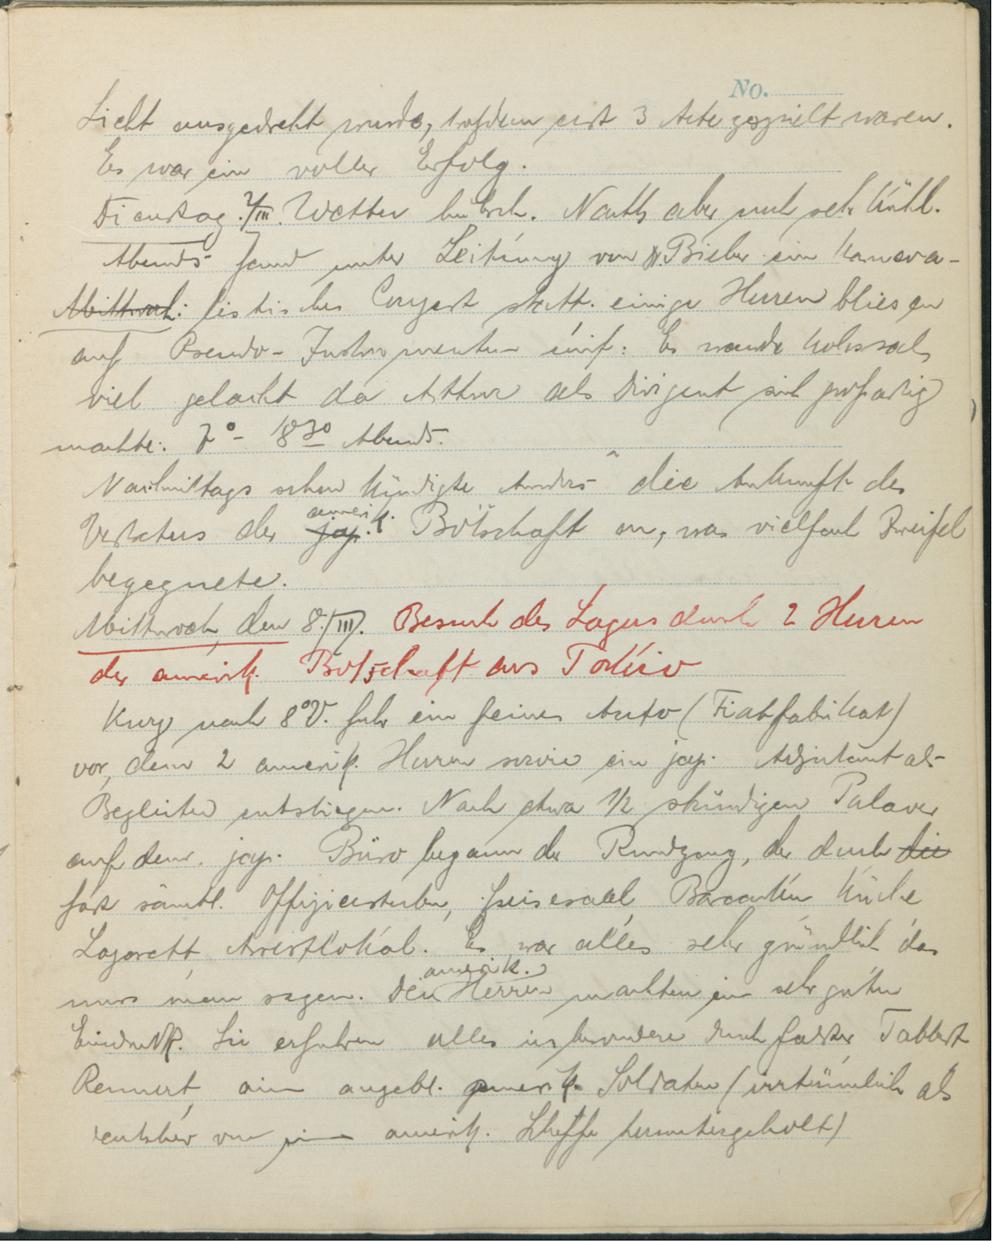 No.
Licht ausgedreht wurde, trotzdem erst 3 Akte gespielt waren.
Es war ein voller Erfolg.
Dienstag. 7/III. Wetter hübsch. Nachts aber noch sehr kühl.
Abends fand unter Leitung von Bieber ein karneva-
Mittwoch: listisches Conzert statt. einige Herren bliesen
auf Pseudo-Instrumenten Es wurde kolossal
viel gelacht da Arthur als Dirigent sich großartig
machte. 7° - 8 30 Abends.
Nachmittags schon kündigte Anders die Ankunft des
Vertreters der jap. amerik. Botschaft an, was vielfach Zweifel
begegnete.
Mittwoch, den 8./III. Besuch des Lagers durch 2 Herren
der amerik. Botschaft aus Tokio
Kurz nach 8° V. fuhr ein feines Auto (Fiatfabrikat)
vor, dem 2 amerik. Herren sowie ein jap. Adjutant als
Begleiter entstiegen. Nach etwa 1/2 stündigen Palaver
auf dem jap. Büro begann der Rundgang, der durch die
fast sämtl. Offizierstuben, Speisesaal Baracken Küche
Lazarett Arrestlokal. Es war alles sehr gründlich das
muss man sagen. Die amerik. Herren machten ein sehr guten
Eindruck. Sie erfuhren alles insbesondere durch Tabbert
Rennert, ein angebl. amerik. Soldaten (irrtümlich als
Deutscher von amerik. Schiffe heruntergeholt)